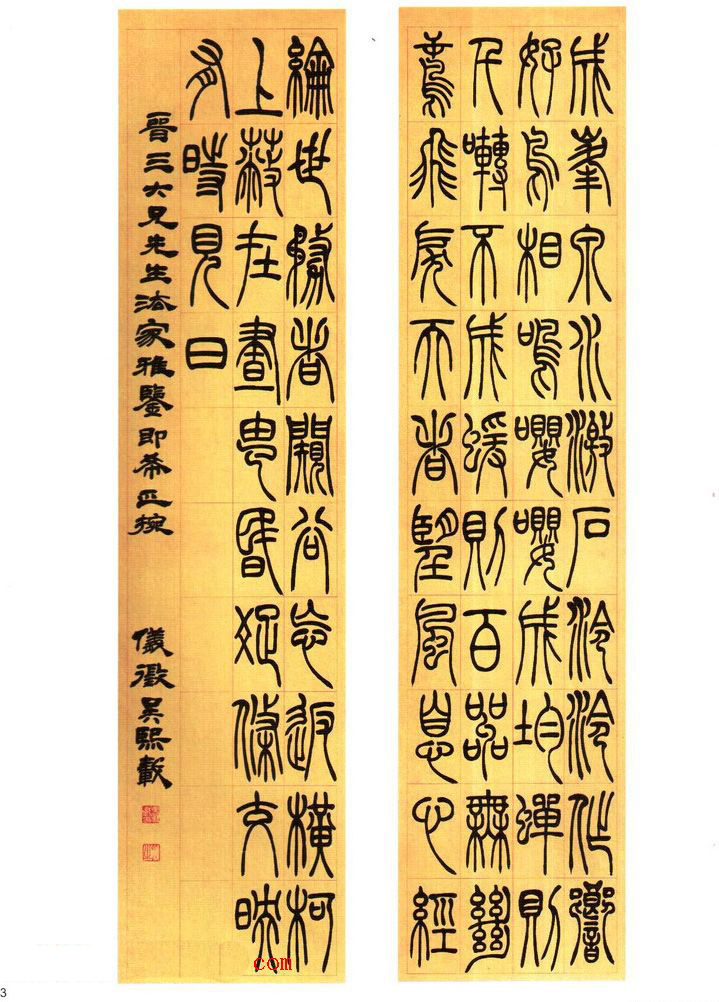 成峯泉水激石泠泠作響
好鳥相鳴嚶嚶成均蟬則
千囀不成蝯則百嘂無絕
鳶飛戾天者望風息心經
綸世務者闚谷忘返橫柯
上蔽在晝昏疏條交映
有時見日
晉三大兄先生法家雅鑒即希正捥
儀徵吳熙載
com
3